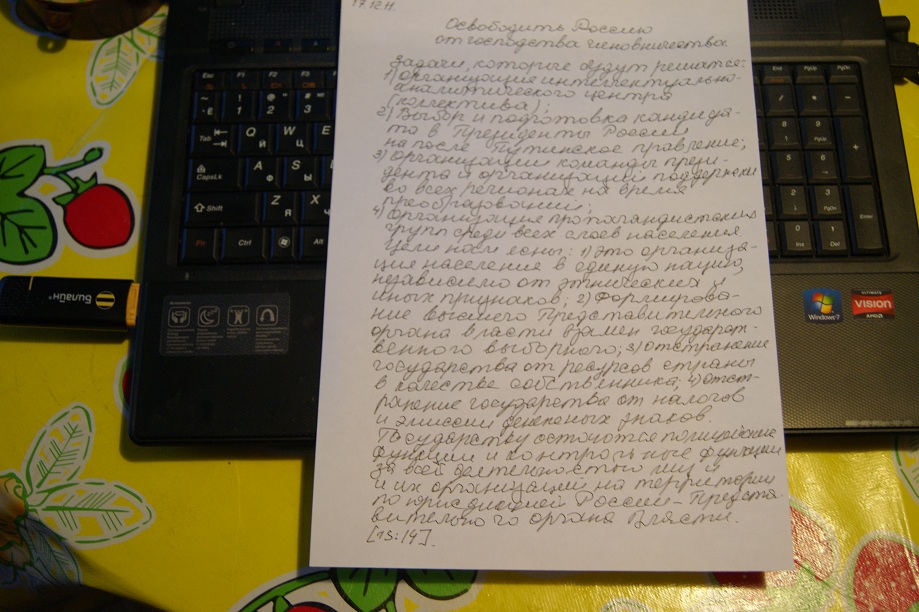 17.12.11.
Освободить Россию
от господства чиновничества
Задачи, которые будут решатся:
1) организация интеллектуально-
аналитического центра
(коллектива);
2) Выбор и подготовка кандида-
та в Президенты России
на после Путинское правление;
3) организации команды прези-
дента и организаций поддержки
во всех регионах на время
преобразований;
4) организация пропагандистских
групп среди всех слоев населения
Цели нам ясны: 1) это организа-
ция населения в единую нацию,
независимо от этнических и
иных признаков; 2) Формирова-
ние высшего Представительного
органа власти взамен государст-
венного выборного; 3) отстранение
государства от ресурсов страны
в качестве собственника; 4) отст-
ранение государства от налогов
и эмиссии денежных знаков.
Государству остаются полицейские
функции и контрольные функции
за всей деятельностью
и их организаций на территории
по юрисдикцией России - Предста-
вительного органа Власти.
[13:14].
Esc F1 F2 F3
Tab Q W E
Й Ц
CapsLk A S
Ф Ы
Shift Z X
Я
Fn Ctrl Alt
Home PgUp PgDn
Enter
Ins Del
Билайн
Windows 7
VISION
AMD